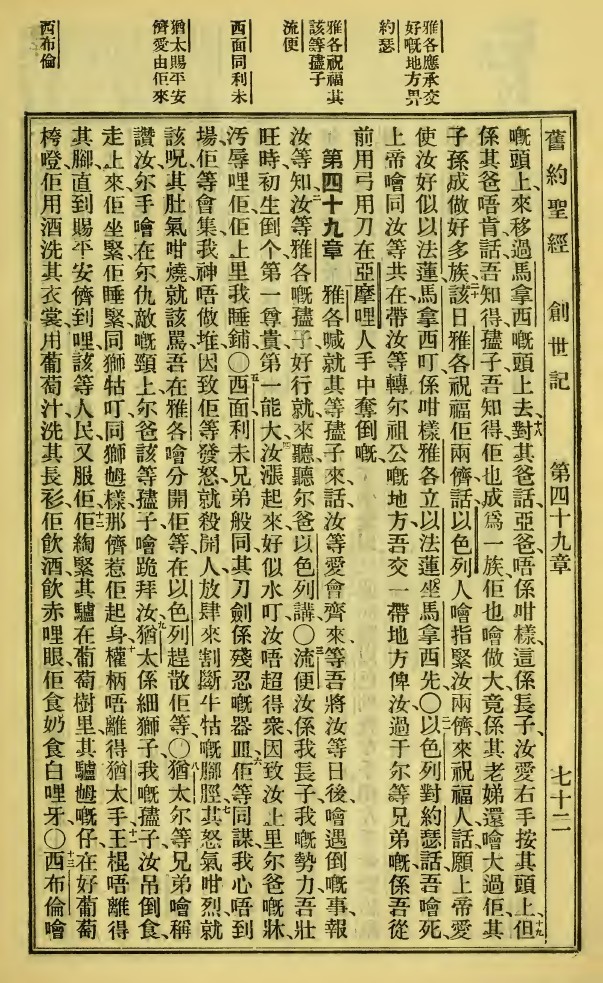 雅各應承交
好嘅地方畀
約瑟
雅各祝福其
該等孻子
流便
西面同利未
猶太賜平安
儕愛由佢來
西布倫
舊約聖經 創世記 第四十九章 七十二
嘅頭上來移過馬拿西嘅頭上去、十八對其爸話、亞爸、唔係咁樣、這係長子、汝愛右手按其頭上、十九但
係其爸唔肯話、吾知得、孻子、吾知得、佢也成爲一族、佢也噲做大、竟係其老娣還噲大過佢、其
子孫成做好多族、二十該日雅各祝福佢兩儕話、以色列人噲指緊汝兩儕來祝福人話、願上帝愛
使汝好似以法蓮馬拿西叮、係咁樣雅各立以法蓮坐馬拿西先〇二一以色列對約瑟話、吾噲死、
上帝噲同汝等共在、帶汝等轉尔祖公嘅地方、吾交一帶地方俾汝、過于尔等兄弟嘅、係吾從
前用弓用刀在亞摩哩人手中奪倒嘅、
第四十九章 雅各喊就其等孻子來話、汝等愛會齊來、等吾將汝等日後噲遇倒嘅事報
汝等知、二汝等雅各嘅孻子、好行就來聽、聽尔爸以色列講〇三流便、汝係我長子、我嘅勢力、吾壯
旺時初生倒个、第一尊貴、第一能大、四汝漲起來好似水叮、汝唔超得衆、因致汝上里尔爸嘅牀
汚辱哩佢、佢上里我睡鋪〇五西面利未兄弟般同、其刀劍係殘忍嘅器皿、六佢等同謀、我心唔到
場、佢等會集、我神唔做堆、因致佢等發怒就殺開人、放肆來割斷牛牯嘅腳脛、七其怒氣咁烈、就
該呪、其肚氣咁燒、就該罵、吾在雅各噲分開佢等、在以色列趕散佢等〇八猶太、尔等兄弟噲稱
讚汝、尔手噲在尔仇敵嘅頸上、尔爸該等孻子噲跪拜汝、九猶太係細獅子、我嘅孻子、汝吊倒食、
走上來、佢坐緊、佢睡緊、同獅牯叮、同獅乸樣、那儕惹佢起身、十權柄唔離得猶太手、王棍唔離得
其腳、直到賜平安儕到哩、該等人民又服佢、十一佢綯緊其驢在葡萄樹里、其驢乸嘅仔、在好葡萄
桍噔、佢用酒洗其衣裳、用葡萄汁洗其長衫、十二佢飲酒飲赤哩眼、佢食奶食白哩牙〇十三西布倫噲